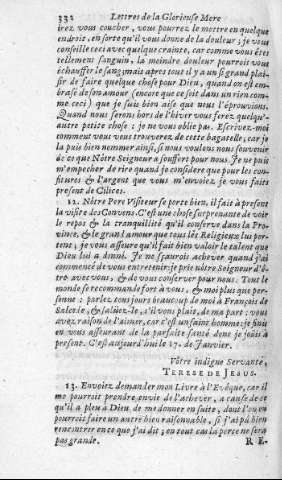 332 Lettres de la Glorieuse Mere
irez vous coucher, vous pourrez le mettre en quelque
endroit, en sorte qu'il vous donne de la douleur; je vous
conseille ceci avec quelque crainte, car comme vous êtes
tellement sanguin, la meindre douleur pourroit vous
échauffer le sang; mais aprés tout il y a un si grand plai-
sir de faire quelque chose pour Dieu, quand on est em-
brasé de son amour (encore que ce soit dans un rien com-
me ceci) que je suis bien aise que nous l'éprouvions.
Quand nous serons hors de l'hiver vous ferez quelqu'-
autre petite chose: je ne vous oblie pas. Escrivez-moi
comment vous vous trouverez de cette bagatelle, car je
la puis bien nemmer ainsi, si nous voulons nous souvenir
de ce que Nôtre Seigneur a souffert pour nous. Je ne puis
m'empecher de rire quand je considere que pour les con-
fitures & l'argent que vous m'envoiez je vous faits
present de Cilices.
12. Nôtre Pere Visiteur se porte bien, il fait à présent
la visite des Convens. C'est une chose surprenante de voir
le repos & la tranquilité qu'il conserve dans la Pro-
vince, & le grand amour que tous les Religieux lui por-
tent; je vous assure qu'il fait bien valoir le talent que
Dieu lui a donné. Je ne sçaurois achever quand j'ai
commencé de vous entretenir: je prie nôtre Seigneur d'ê-
tre avec vous, & de vous conserver pour nous. Tout le
monde se recommande fort à vous, & moi plus que per-
sonne: parlez toujours beaucoup de moi à François de
Salcede, & salüez-le, s'il vous plais, de ma part: vous
avez raison de l'aimer, car c'est un saint homme: je finis
en vous asseurant de la parfaite santé dont je joüis à
present. C'est aujourd'hui le 17. de Janvier.
Vôtre indigne Servante,
TERESE DE JESUS.
13. Envoiez demander mon Livre à l'Evêque, car il
me pourroit prendre envie de l'achever, a cause de ce
qu'il a pleu à Dieu de me donner en suite, dont l'on en
pourroit faire un autre bien raisonnable, si j'ai pû bien
rencontrer en ce que j'ai dit; en tout cas la perte ne sera
pas grande. R E-